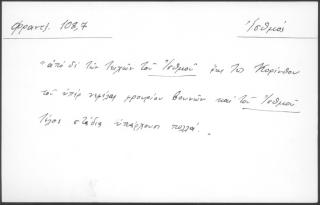 Φραντζ. 108,7 Ἰσθμός
"ἀπὸ δὲ τῶν τειχῶν τοῦ Ἰσθμοῦ ἕως τῆς Κορίνθου
τοῦ ὑπὲρ νεφέλας φρουρίου βουνῶν καὶ τοῦ Ἰσθμοῦ
τέλος στάδια ὑπάρχουσι πολλά.